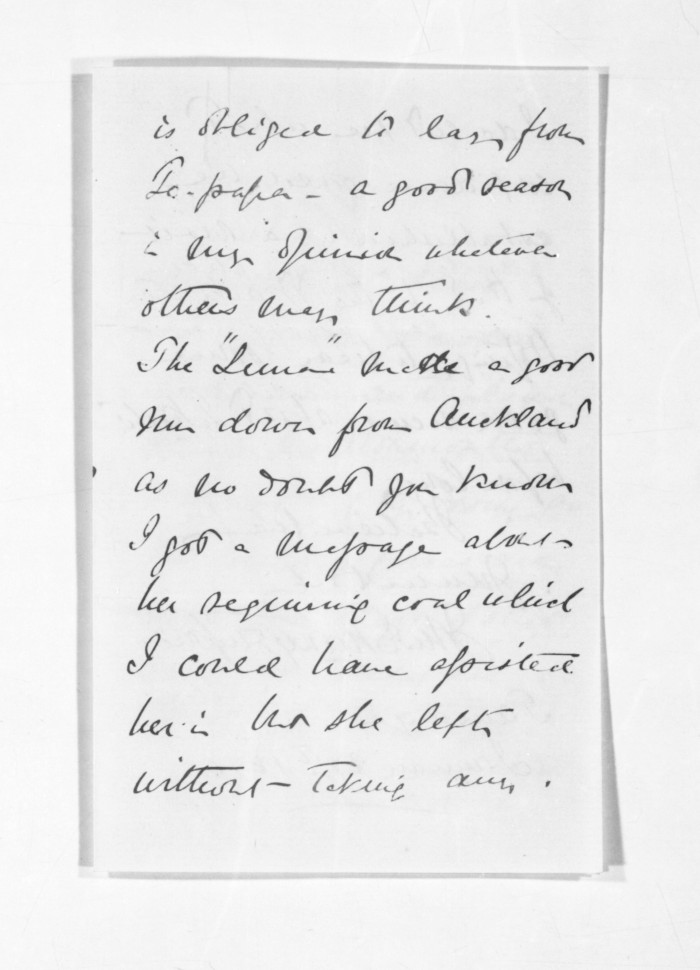 is obliged to from
Te-papa - a good reason
in my opinion whatever
others may think.
The "Luna" made a good
run down from Auckland
as no doubt you know
I got a message about
her requiring coal which
I could have assisted
her in but she left
without taking any.